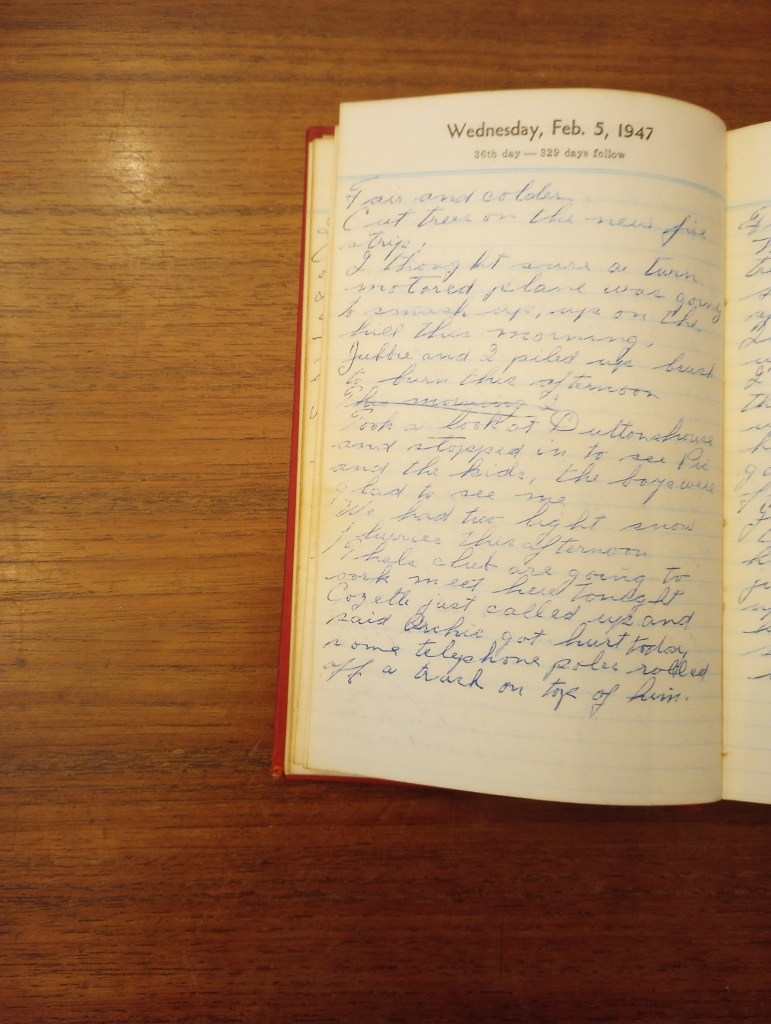 Wednesday, Feb. 5, 1947
36th day — 329 days follow
Fair and colder.
Cut trees on the new fire
strip.
I thought sure a turn
motored plane was going
to smash up, up on the
hill this morning.
and I piled up brush
to burn this afternoon
The morning
Took a look at Duttons house
and stopped in to see
and the kids, the boys were
glad to see me
We had two light snow
flurries this afternoon
club are going to
work meet here tonight
just called up and
said Archie got hurt today
some telephone poles rolled
off a truck on top of him.